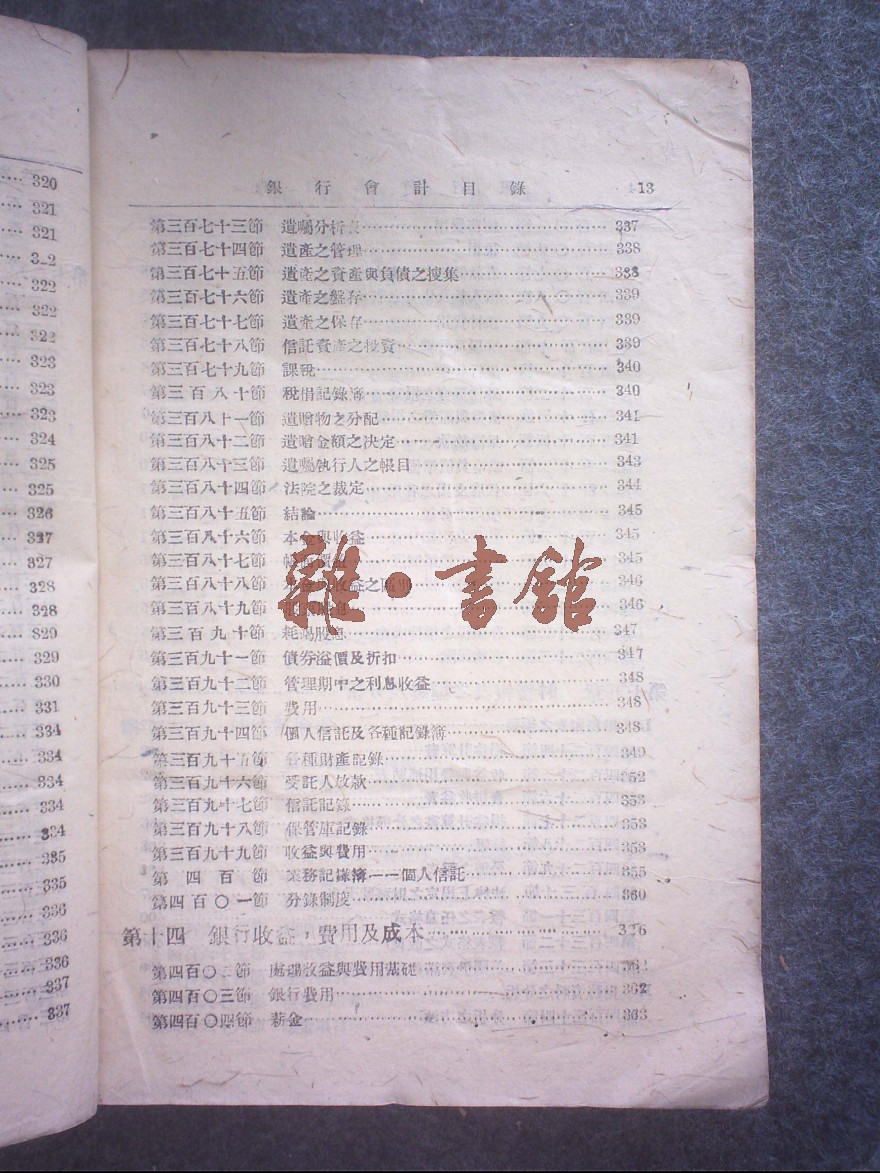 320
321
321
322
322
322
323
323
323
324
325
325
326
327
327
328
328
329
329
330
331
334
334
334
334
334
335
335
336
336
336
337
337
銀行會計目錄 13
第三百七十三節 遺囑分析表 337
第三百七十四節 遺產之管理 338
第三百七十五節 遺產之資產與負債之搜集 338
第三百七十六節 遺產之盤存 339
第三百七十七節 遺產之保存 339
第三百七十八節 信託資產之投資 339
第三百七十九節 課稅 340
第三百八十節 稅捐記錄簿 340
第三百八十一節 遺贈物之分配 341
第三百八十二節 遺贈金額之決定 341
第三百八十三節 遺囑執行人之帳目 343
第三百八十四節 法院之裁定 344
第三百八十五節 結論 345
第三百八十六節 本金與收益 345
第三百八十七節 345
第三百八十八節 收益之區別 346
第三百八十九節 346
第三百九十節 耗竭股息 347
第三百九十一節 債券溢價及折扣 347
第三百九十二節 管理期中之利息收益 348
第三百九十三節 費用 348
第三百九十四節 個人信託及各種記錄簿 348
第三百九十五節 各種財產記錄 349
第三百九十六節 受託人放款 352
第三百九十七節 信託記錄 353
第三百九十八節 保管庫記錄 353
第三百九十九節 收益與費用 353
第四百節 業務記錄簿——個人信託 355
第四百〇一節 分錄制度 360
第十四 銀行收益，費用及成本 376
第四百〇二節 處理收益與費用基礎 362
第四百〇三節 銀行費用 362
第四百〇四節 薪金 363
雜·書館